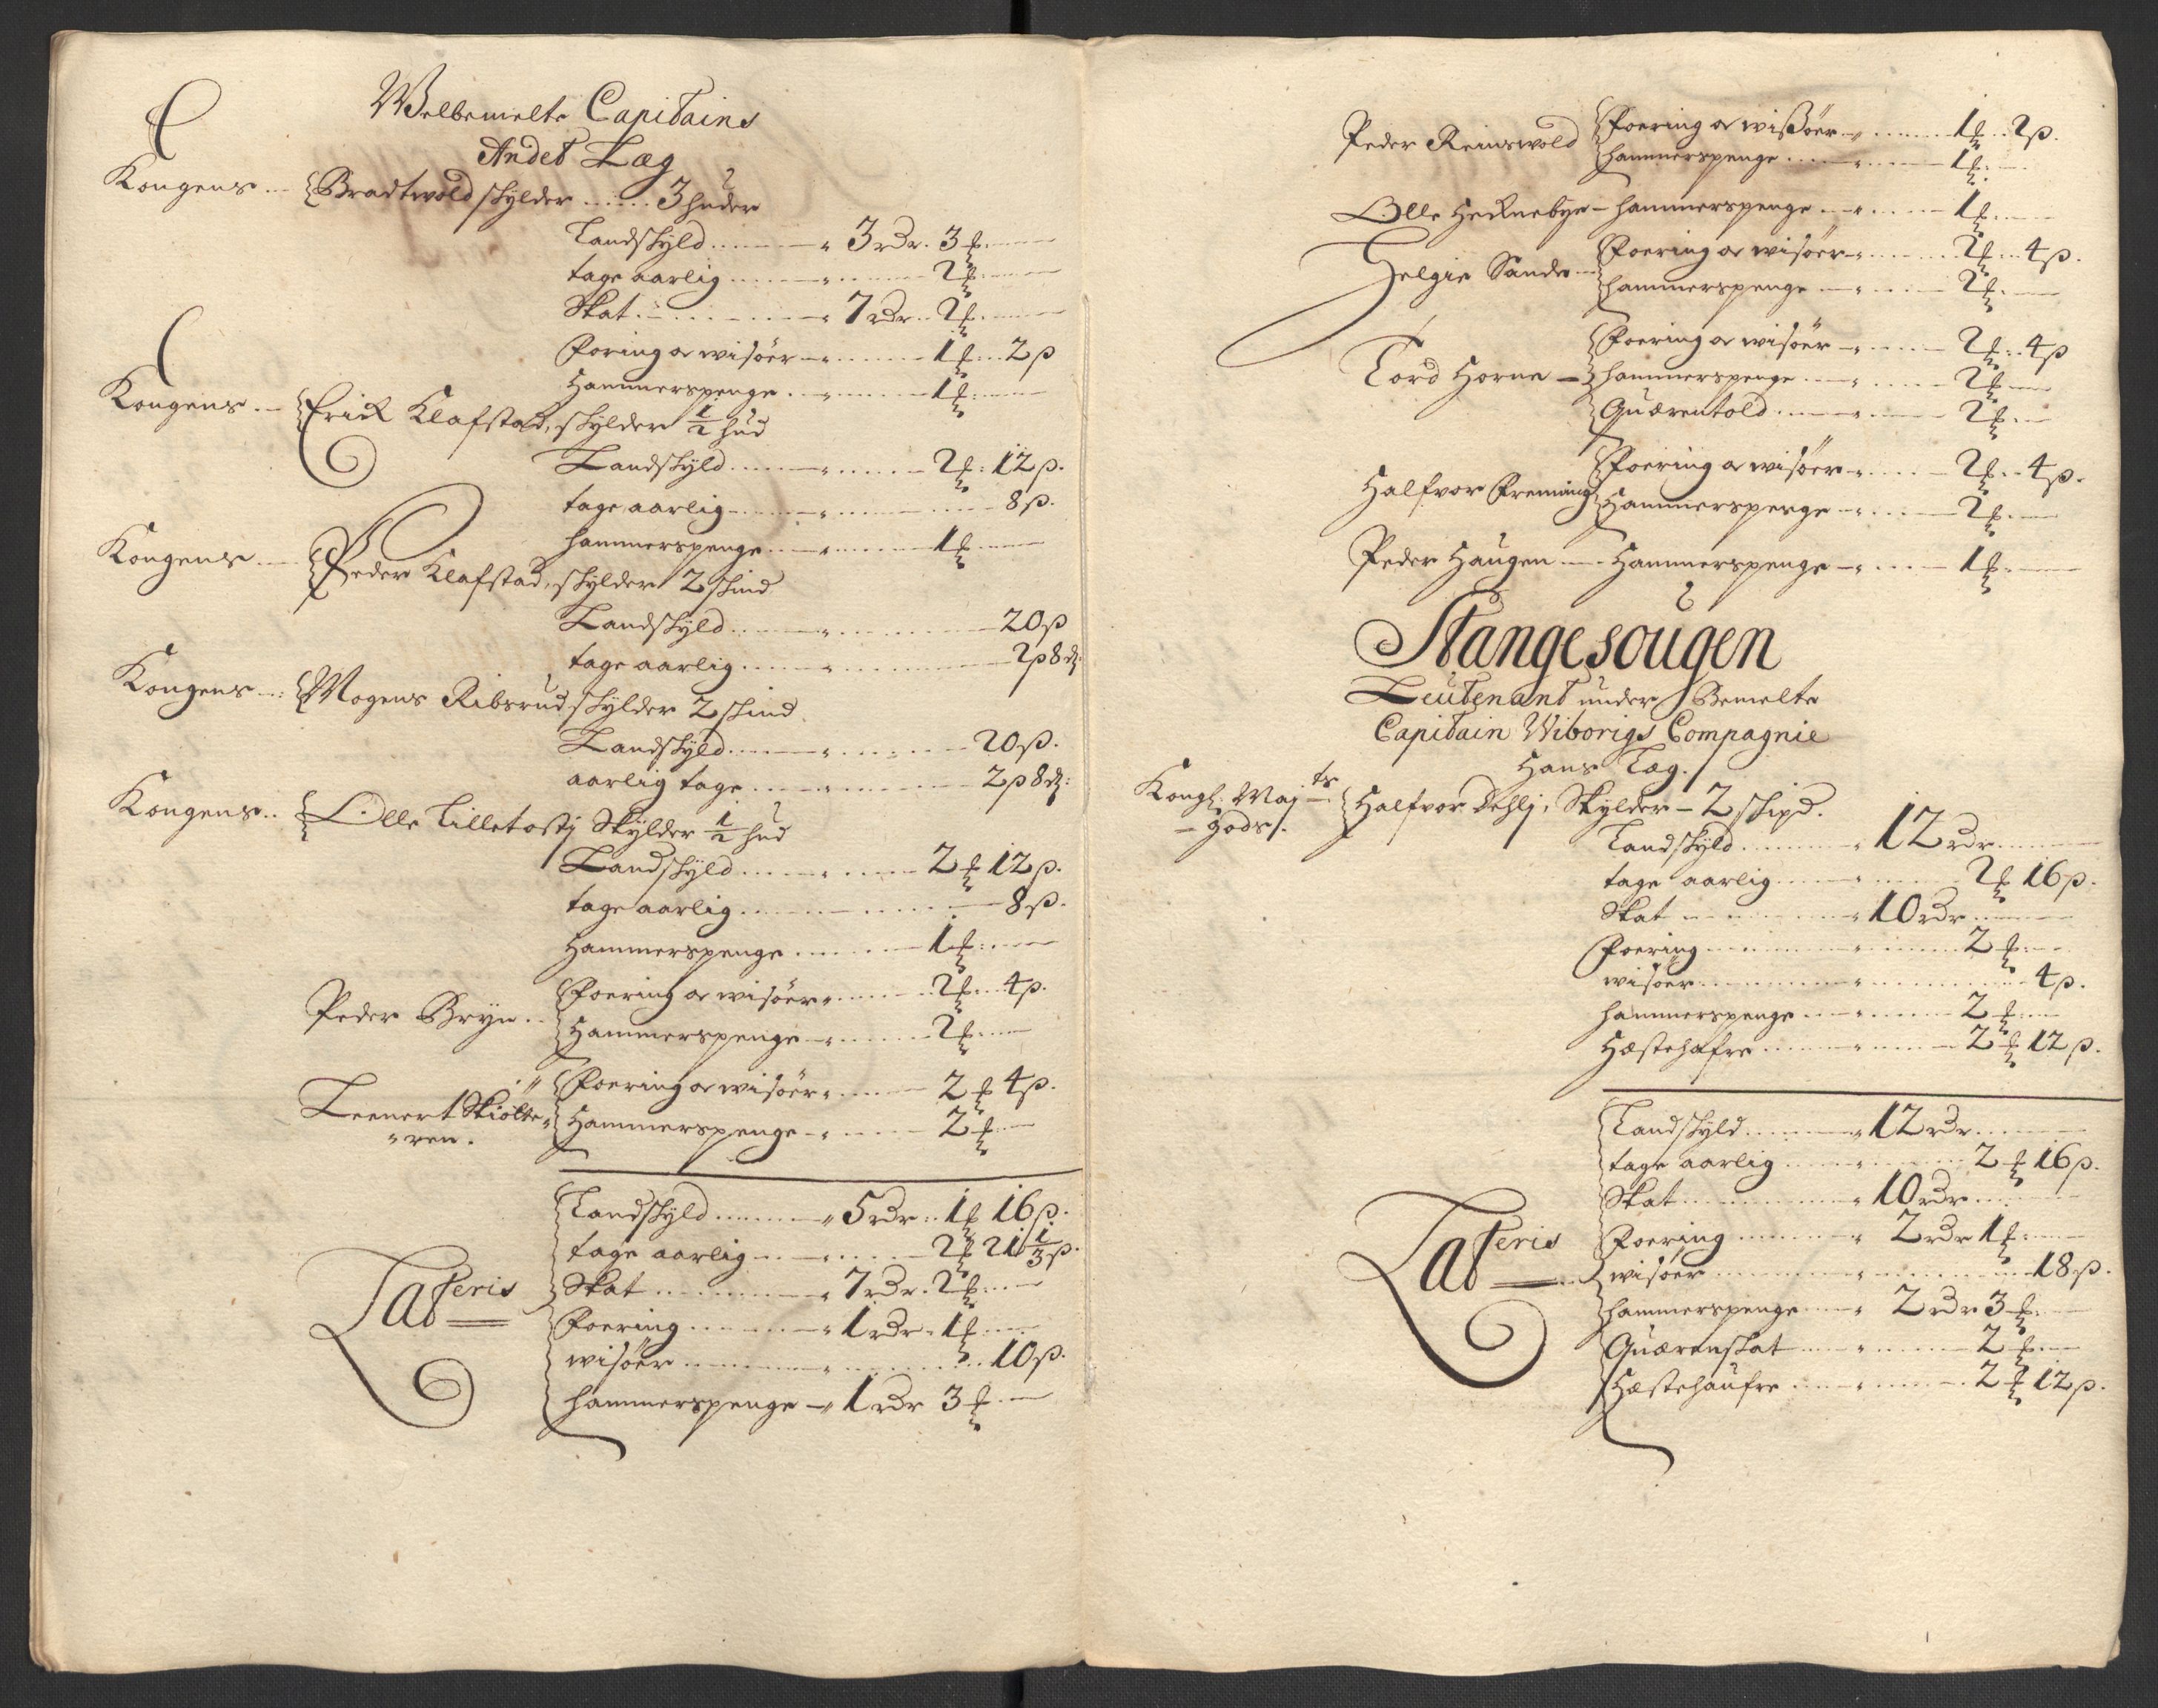 Welbemelte Capitains
Andet Læg
Kongens .. Bradtwold skylder ..... 3 huder
Landskyld ........ 3 rdr. 3 ℔
tage aarlig ........ 2 ℔
Skat ........ 7 rdr. 2 ℔
Foring oc wisöer ........ 1 ℔ .. 2 β
Hammerspenge ........ 1 ℔
Kongens .. Erick Klafstad, skylder 1/2 hud
Landskyld ........ 2 ℔ : 12 β.
tage aarlig ........ 8 β.
hammerspenge ........ 1 ℔
Kongens ... Peder Klafstad, skylder 2 skind
Landskyld ........ 20 β
tage aarlig ........ 2 β 8 d:
Kongens ... Mogens Ribsrud skylder 2 skind
Landskyld ........ 20 β.
aarlig tage ........ 2 β 8 d:
Kongens .. Olle Lilletostj Skylder 1/2 hud
Landskyld ........ 2 ℔ 12 β.
tage aarlig ........ 8 β.
Hammerspenge ........ 1 ℔
Peder Bryn .. Foering oc wisöer ........ 2 ℔ .. 4 β.
Hammerspenge ........ 2 ℔
Leenert Skiölte- Foering oc wisöer ........ 2 ℔ 4 β.
ren. Hammerspenge ........ 2 ℔
Landskyld ........ 5 rdr .. 1 ℔ 16 β.
tage aarlig ........ 2 ℔ 21 1/3 β.
Lateris Skat ........ 7 rdr. 2 ℔
Foering ........ 1 rdr. 1 ℔
wisöer ........ 10 β.
hammerspenge ... 1 rdr 3 ℔
Peder Reinswold Foering oc wißöer ........ 1 ℔ .. 2 β.
hammerspenge ........ 1 ℔
Olle Hecknebye - hammerspenge ........ 1 ℔
Helgie Sande Foering oc wisöer ........ 2 ℔ .. 4 β.
hammerspenge ........ 2 ℔
Tord Horne - Foering oc wisöer ........ 2 ℔ .. 4 β
hammerspenge ........ 2 ℔
Quærentold ........ 2 ℔
Halfvor Freming Foering oc wisöer ........ 2 ℔ .. 4 β.
Hammerspenge ........ 2 ℔
Peder Haugen ... Hammerspenge ........ 1 ℔
Stange sougen
Leutenant under Bemelte
Capitain Wiborigs Compagnie
Hans Læg.
Kongl: Maj ts Halfvor Dehlj, Skylder - 2 skipd.
gods. Landskyld ........ 12 rdr
tage aarlig ........ 2 ℔ 16 β.
Skat ........ 10 rdr
Foering ........ 2 ℔
wisöer ........ 4 β.
hammerspenge ........ 2 ℔
Hæstehafre ........ 2 ℔ 12 β.
Landskyld ........ 12 rdr
tage aarlig ........ 2 ℔ 16 β.
Skat ........ 10 rdr
Lateris Foering ........ 2 rdr 1 ℔
wisöer ........ 18 β.
hammerspenge ... 2 rdr 3 ℔
Quærnskat ........ 2 ℔
Hæstehaufre ........ 2 ℔ 12 β.